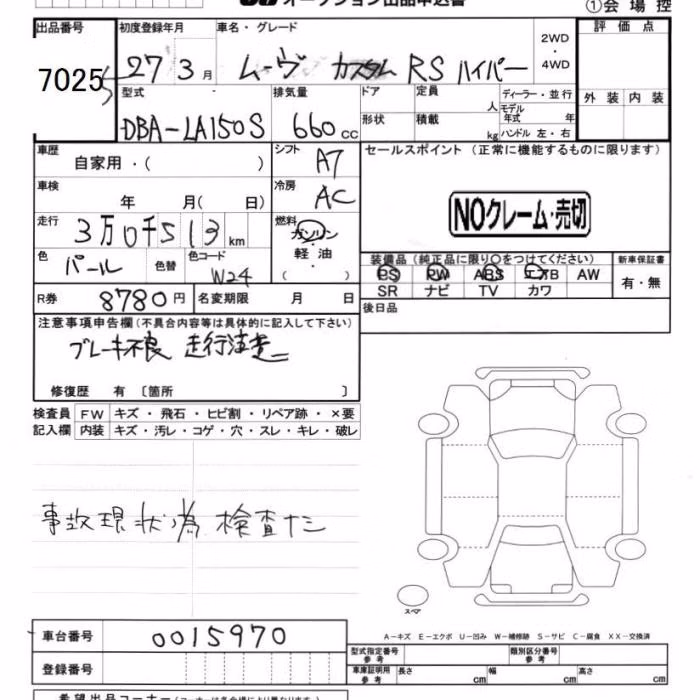 オークション出品申込書
①会場控
出品番号 初度登録年月 車名・グレード 評価点
70255 27 3月 ムーヴ カスタム RS ハイパー 2WD・4WD
型式 排気量 ドア 定員 人 ディーラー・並行 外装 内装
DBA-LA150S 660cc 形状 積載 kg モデル年式 年 ハンドル 左・右
車歴 自家用・( ) シフト A7 セールスポイント (正常に機能するものに限ります)
車検 年 月( 日) 冷房 AC
NOクレーム・売切
走行 3万0千513km 燃料 ガソリン・軽油・( )
色 パール 色替 色コード W24
装備品(純正品に限り○をつけてください) 新車保証書
PS PW ABS エアB AW 有・無
SR ナビ TV カワ
R券 8780円 名変期限 月 日 後日品
注意事項申告欄(不具合内容等は具体的に記入して下さい)
ブレーキ不良 走行注意
修復歴 有 〔箇所 〕
検査員 FW キズ・飛石・ヒビ割・リペア跡・×要
記入欄 内装 キズ・汚レ・コゲ・穴・スレ・キレ・破レ
事故現状の為 検査ナシ
スペア
車台番号 0015970
A-キズ E-エクボ U-凹み W-補修跡 S-サビ C-腐食 XX-交換済
型式指定番号 参考 類別区分番号 参考
登録番号 車庫証明用 参考 長さ cm 幅 cm 高さ cm
希望出品コーナー